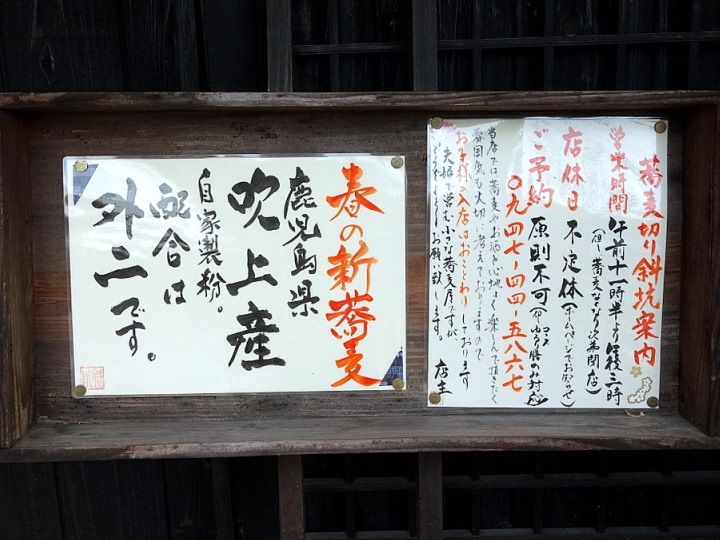 蕎麦切り斜坑案内
営業時間 午前十一時半より午後三時
(但し蕎麦なくなり次第閉店)
店休日 不定休(ホームページでお知らせ)
ご予約 原則不可(但し夜のみ対応)
〇九四七-四四-五八六七
当店では蕎麦やお酒を心地よく楽しんで頂きたく
雰囲気も大切に考えておりますので
お子様の入店はおことわりしております
夫婦で営む小さな蕎麦屋ですが、
どうぞよろしくお願い致します。 店主
春の新蕎麦
鹿児島県
吹上産
自家製粉。
配合は
外二です。